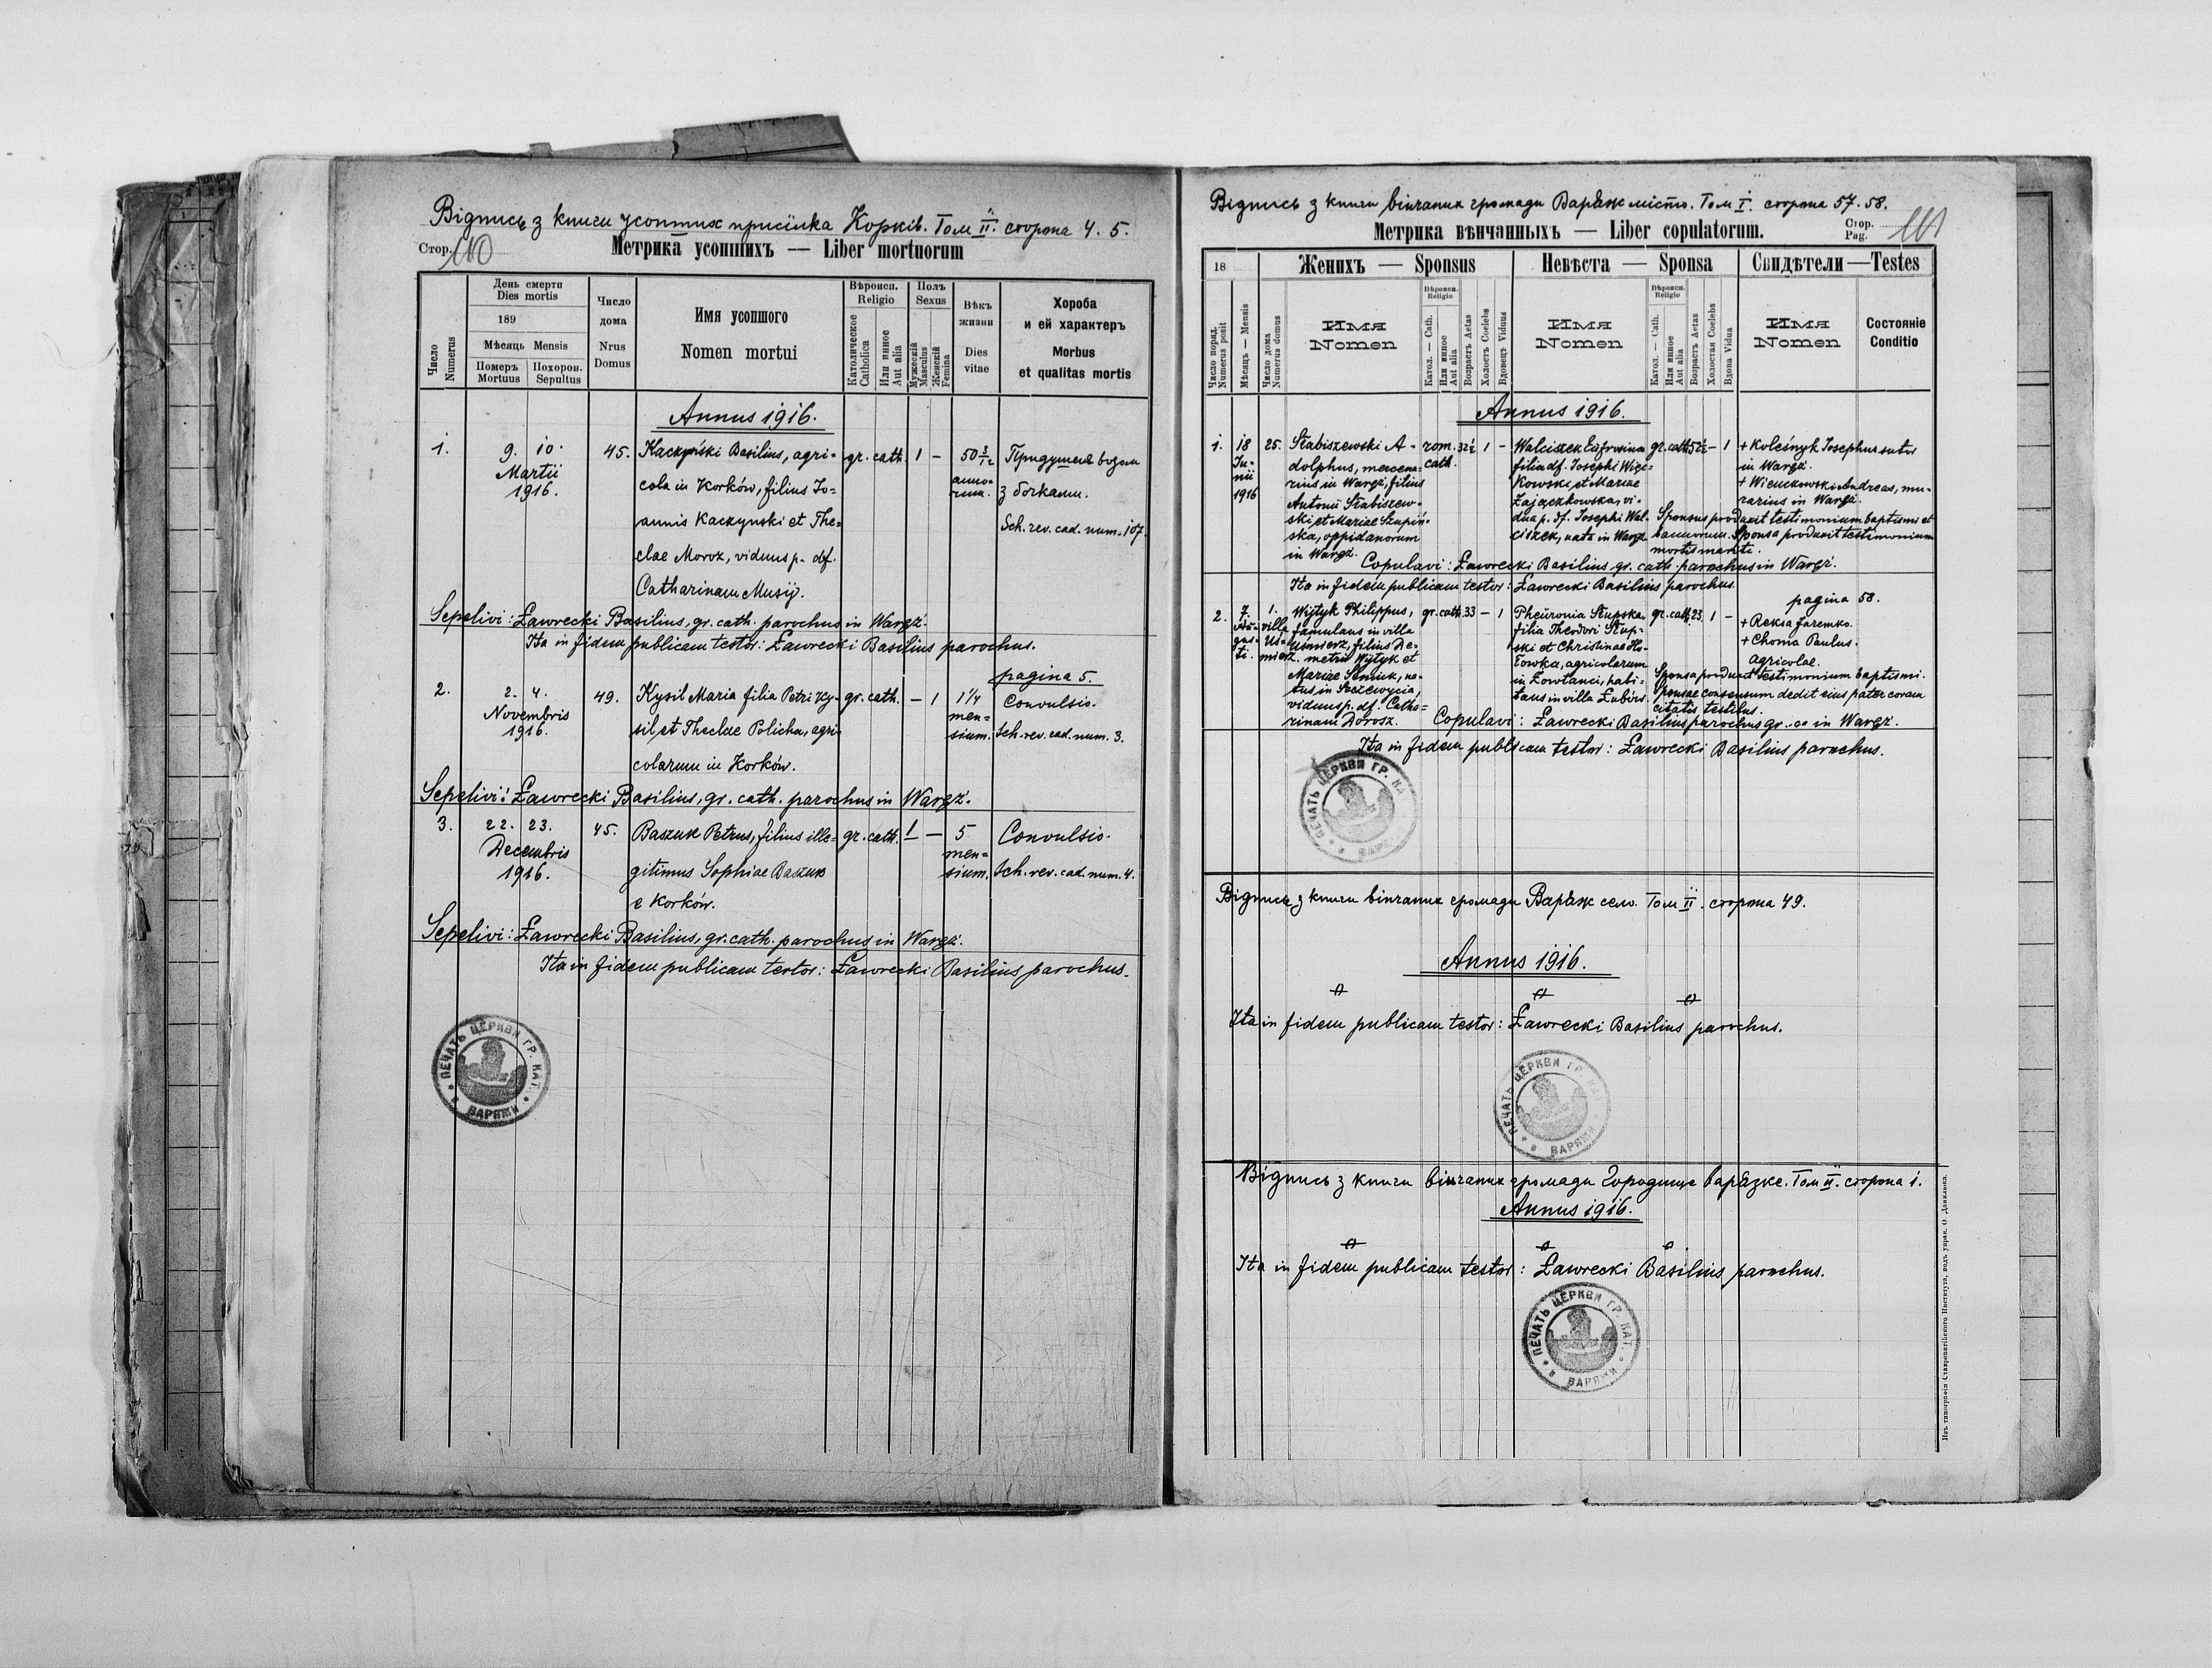 Відпись з книги усопших присілка Корків. Том II. сторона 4. 5.
Стор. 110
Метрика усопшихъ — Liber mortuorum
Число Numerus
День смерти
Dies mortis
189
Мѣсяць Mensis
Померъ Mortuus
Похорон. Sepultus
Число дома
Nrus Domus
Имя усопшого
Nomen mortui
Вѣроисп. Religio
Католическое Catholica
Или инное Aut alia
Полъ Sexus
Мужескій Masculus
Женскій Femina
Вѣкъ жизни
Dies vitae
Хороба
и ей характеръ
Morbus
et qualitas mortis
Annus 1916.
1. 9. 10. 45. Kaczyński Basilius, agri- gr. cath. 1 – 50 3/12 Придушений возом
Martii cola in Korków, filius Jo= anno= з бочками.
1916. annis Kaczynski et The= rum. Sch. rev. cad. num. 107.
clae Moroz, viduus p. df.
Catharinam Musij.
Sepelivi: Ławrecki Basilius, gr. cath. parochus in Waręż.
Ita in fidem publicam testor: Ławrecki Basilius parochus.
pagina 5.
2. 2. 4. 49. Kysil Maria filia Petri Ky- gr. cath. – 1 1 1/4 Convulsio.
Novembris sil et Theclae Policha, agri- men=
1916. colarum in Korków. sium. Sch. rev. cad. num. 3.
Sepelivi: Ławrecki Basilius, gr. cath. parochus in Waręż.
3. 22. 23. 45. Baszuk Petrus, filius ille= gr. cath. 1 – 5 Convulsio.
Decembris gitimus Sophiae Baszuk men=
1916. e Korków. sium. Sch. rev. cad. num. 4.
Sepelivi: Ławrecki Basilius, gr. cath. parochus in Waręż.
Ita in fidem publicam testor: Ławrecki Basilius parochus.
ПЕЧАТЬ ЦЕРКВИ ГР. КАТ. в ВАРЯЖИ
Відпись з книги вінчаних громади Варяж місто. Том I. сторона 57. 58.
Метрика вѣнчанныхъ — Liber copulatorum.
Стор. Pag. 111
18
Женихъ — Sponsus
Невѣста — Sponsa
Свидѣтели — Testes
Число поряд. Numerus posit
Мѣсяць — Mensis
Число дома Numerus domus
Имя Nomen
Вѣроисп. Religio
Катол. — Cath.
Или инное Aut alia
Возрастъ Aetas
Холостъ Coelebs
Вдовець Viduus
Имя Nomen
Вѣроисп. Religio
Катол. — Cath.
Или инное Aut alia
Возрастъ Aetas
Холостая Coelebs
Вдова Vidua
Имя Nomen
Состояніе Conditio
Annus 1916.
1. 18 Junii 1916 25.
Stabiszewski A-
dolphus, mercena-
rius in Waręż, filius
Antonii Stabiszew-
ski et Mariae Szupiń-
ska, oppidanorum
in Waręż.
rom. cath. 32½ 1 –
Waliczek Eufrosina
filia df. Josephi Więc=
kowski et Mariae
Zajączkowska, vi-
dua p. df. Josephi Wal-
ciszek, nata in Waręż
gr. cath. 52½ – 1
+ Koleśnyk Josephus sutor
in Waręż.
+ Wienckowski Andreas, mu-
rarius in Waręż.
Sponsus produxit testimonium baptismi et
bannorum. Sponsa produxit testimonium
mortis mariti.
Copulavi: Ławrecki Basilius gr. cath. parochus in Waręż.
Ita in fidem publicam testor: Ławrecki Basilius parochus.
pagina 58.
2. 7. Augusti. 1. villa Uśmierz.
Wijtyk Philippus,
famulans in villa
Uśmierz, filius De-
metrii Wijtyk et
Mariae Seniuk, na-
tus in Szczewycia,
viduus p. df. Catha-
rinam Dorosz.
gr. cath. 33 – 1
Pheuronia Słupska,
filia Theodori Słup-
ski et Christinae Ho-
łowka, agricolarum
in Łowtanci, habi-
tans in villa Łubów.
gr. cath. 23. 1 –
+ Reksa Jaremko.
+ Choma Paulus.
agricolae.
Sponsa produxit testimonium baptismi.
Sponsae consensum dedit eius pater coram
citatis testibus.
Copulavi: Ławrecki Basilius parochus gr. ca in Waręż.
Ita in fidem publicam testor: Ławrecki Basilius parochus.
ПЕЧАТЬ ЦЕРКВИ ГР. КА
Відпись з книги вінчаних громади Варяж село. Том II. сторона 49.
Annus 1916.
Ita in fidem publicam testor: Ławrecki Basilius parochus.
ПЕЧАТЬ ЦЕРКВИ ГР. КАТ. в ВАРЯЖИ
Відпись з книги вінчаних громади Городище варязке. Том II. сторона 1.
Annus 1916.
Ita in fidem publicam testor: Ławrecki Basilius parochus.
ПЕЧАТЬ ЦЕРКВИ ГР. КАТ. в ВАРЯЖИ
Изъ типографіи Ставропигійского Института, подъ управ. О. Данилюка.